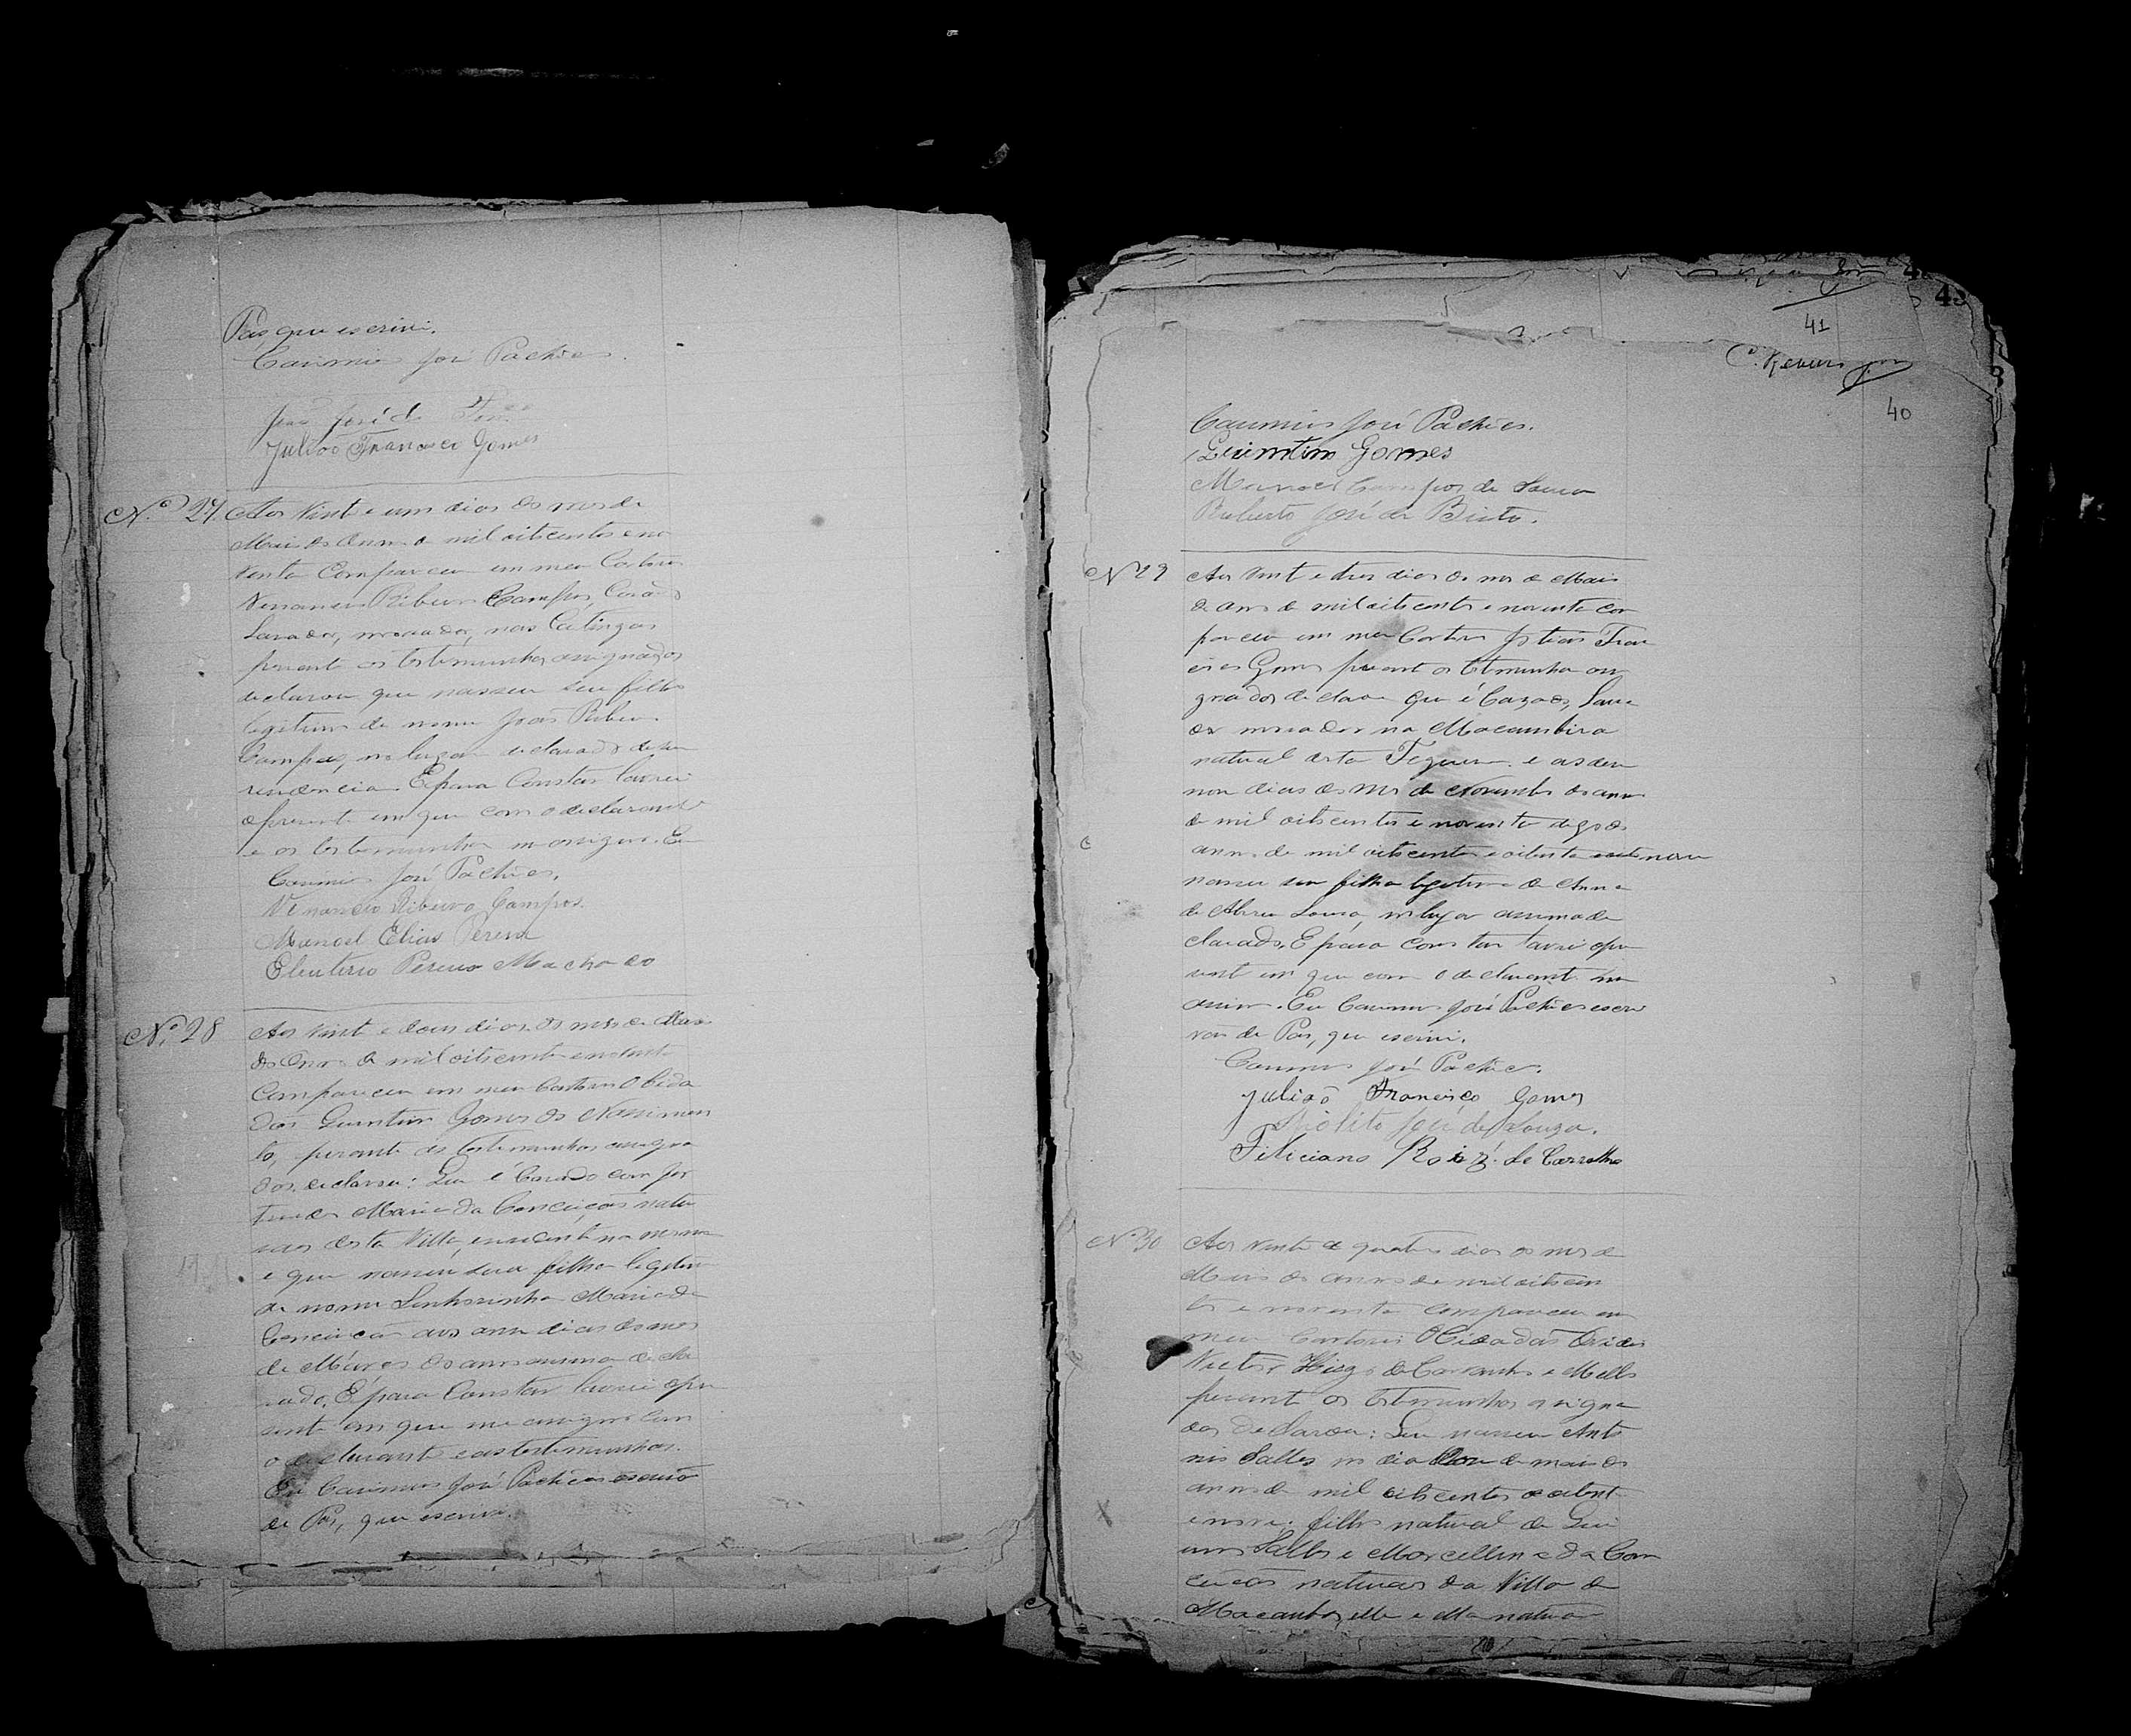 Pás que escrivi.
Casimiro José Pachêco.
João José de
Julião Francisco Gomes
N.º 27. Aos vint e um dias do mes de
Maio do anno de mil oitocentos e no
venta Compareceu em meu Cartorio
Venancio Ribeiro Campos, Casado
Lavrador, morador, nas Catingas
perante as testemunhas assignados
declarou que nasceu seu filho
legitimo de nome João Ribeiro
Campos, no lugar declarado de sua
residencia. E para Constar lavrei
o presente em que com o declarante
e as testemunhas me assigno. Eu
Casimiro José Pachêco.
Venancio Ribeiro Campos.
Manoel Elias Pereira
Eleuterio Pereira Machado
N.º 28 Aos vint e dous dias do mes de Maio
do Anno de mil oitocentos e noventa
Compareceu em meu Cartorio O Cida
dão Quintino Gomes do Nascimen
to, perante as testemunhas assigna
dos, declarou: Que é Casado com
Maria da Conceição natu
raes desta Villa, e residente na mesma
e que nasceu sua filha legitima
de nome Senhorinha Maria da
Conceição aos onze dias do mes
de Março do anno acima decla
rado. E para Constar lavrei o pre
sente em que me assigno com
o declarante e as testemunhas.
Eu Casimiro José Pachêco escrivão
de Pás, que escrivi.
41
C. Reveur
40
Casimiro José Pachêco.
Quintino Gomes
Manoel Campos de Souza
Ruberto José de Brito.
N 29 Aos vint e tres dias do mes de Maio
do anno de mil oitocentos e noventa com
pareceu em meu Cartorio Fran
Gomes perant as testemunhas assi
gnados declarou que é Cazado, Lavra
dor morador na Macambira
natural desta Freguesia e as deze
nove dias do mes de Novembro do anno
de mil oitocentos e noventa digo do
anno de mil oitocentos e oitenta e nove
nasceu sua filha legitima de Anna
de Abreu Souza, no lugar assima de
clarado. E para constar lavrei o pre
sente em que com o declarante me
assino. Eu Casimiro José Pachêco escri
vão de Pas, que escrivi.
Casimiro José Pachêco.
Julião Francisco Gomes
Ipolito José de Souza.
Feliciano Roiz. de Carvalho
N.º 30 Aos vinte e quatro dias do mes de
Maio do anno de mil oitocen
tos e noventa compareceu em
meu Cartorio O Cidadão
Victor Hugo de e Mello
perante as testemunhas assigna
dos Declarou: Que nasceu Anto
nio Salles no dia de maio do
anno de mil oitocentos e oitent
e nove, filho natural de
Salles e Marcellina da Con
ceição naturaes da Villa de
elle e ella natural